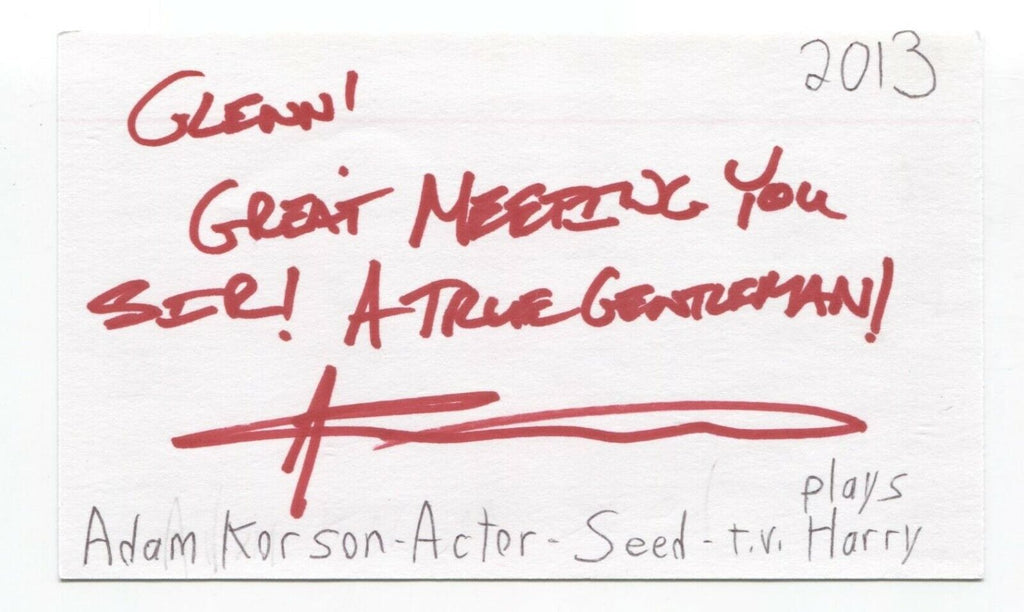 2013
GLENN!
GREAT MEETING YOU
SIR! A TRUE GENTLEMAN!
plays
Adam Korson-Actor-Seed-t.v. Harry